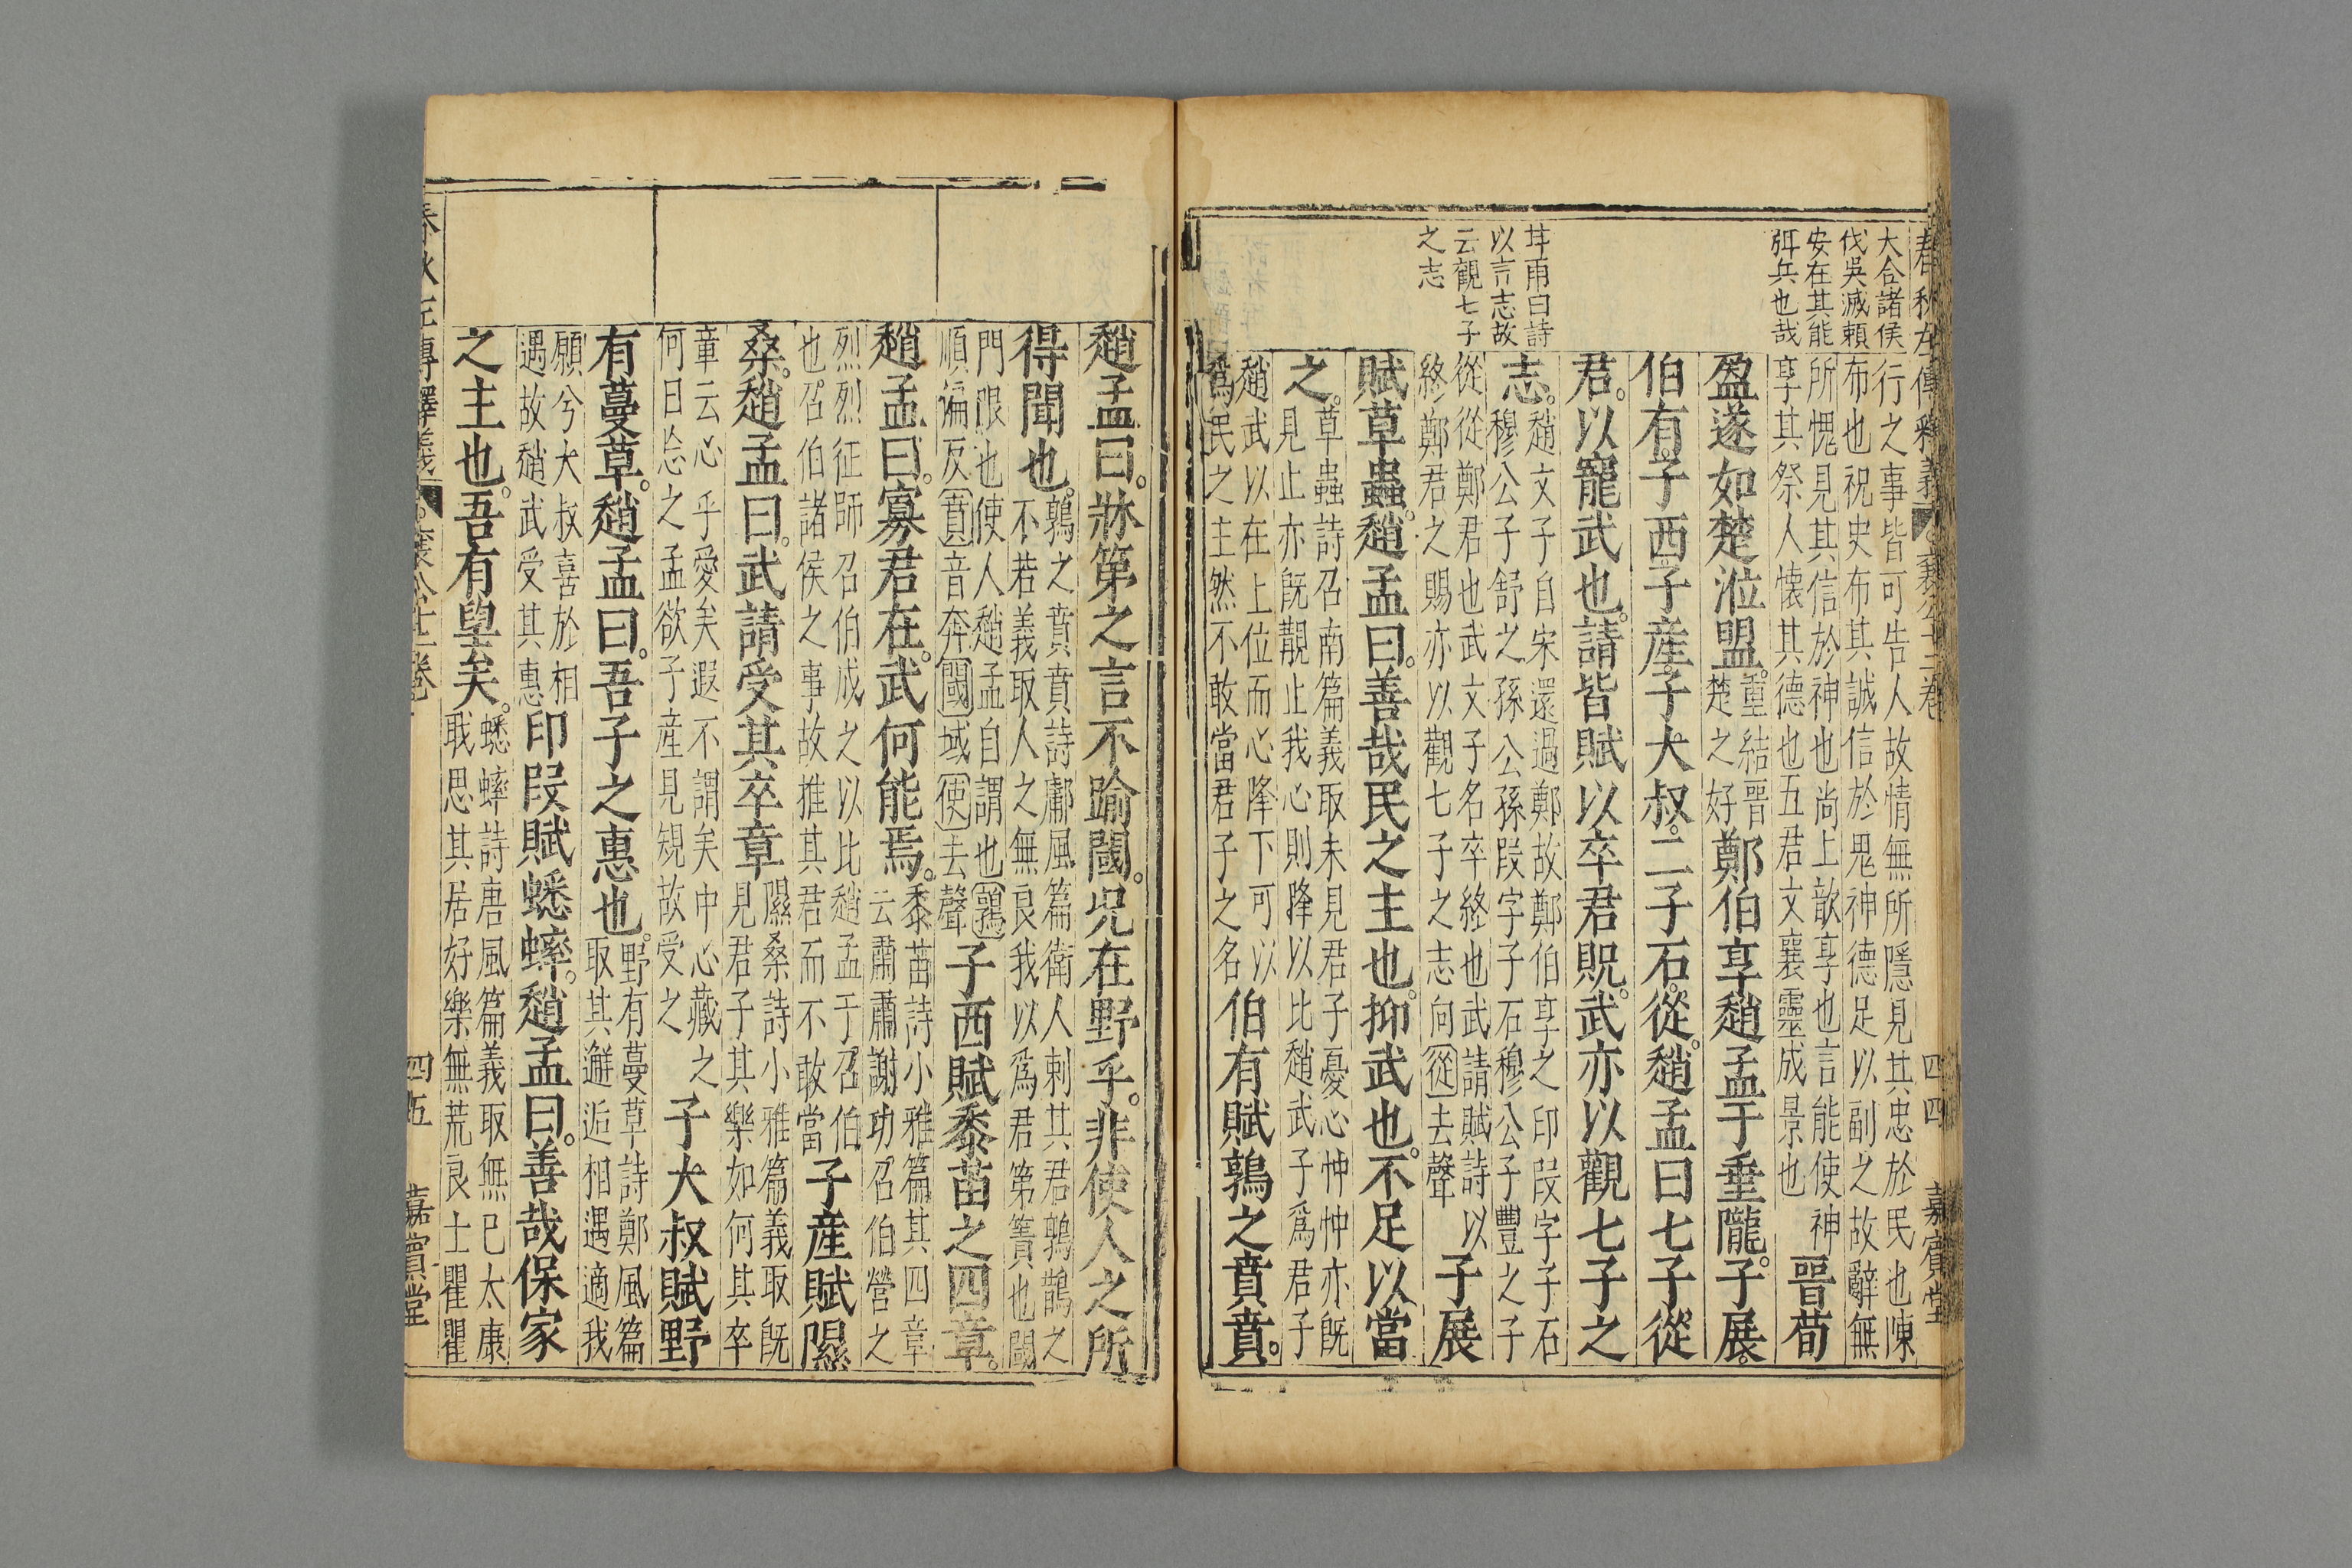 春秋左傳釋義
襄公十二卷
四四
嘉賓堂
大合諸侯
伐吳滅賴
安在其能
弭兵也哉
行之事皆可告人故情無所隱見其忠於民也陳
布也祝史布其誠信於鬼神德足以副之故辭無
所愧見其信於神也尚上歆享也言能使神
享其祭人懷其德也五君文襄靈成景也
晉荀
盈遂如楚涖盟。
重結晉
楚之好
鄭伯享趙孟于垂隴。子展。
伯有。子西。子產。子大叔。二子石。從。趙孟曰七子從
君。以寵武也。請皆賦以卒君貺。武亦以觀七子之
志。
趙文子自宋還過鄭故鄭伯享之印段字子石
穆公子舒之孫公孫段字子石穆公子豐之子
從從鄭君也武文子名卒終也武請賦詩以
終鄭君之賜亦以觀七子之志向從去聲
子展
曰詩
以言志故
云觀七子
之志
賦草蟲。趙孟曰。善哉民之主也。抑武也。不足以當
之。
草蟲詩召南篇義取未見君子憂心忡忡亦既
見止亦既覯止我心則降以比趙武子為君子
趙武以在上位而心降下可以
為民之主然不敢當君子之名
伯有賦鶉之賁賁。
趙孟曰。牀第之言不踰閾。況在野乎。非使人之所
得聞也。
鶉之賁賁詩鄘風篇衛人刺其君鶉鵲之
不若義取人之無良我以為君第簀也閾
門限也使人趙孟自謂也鶉
順偏反賁音奔閾域使去聲
子西賦黍苗之四章。
趙孟曰。寡君在。武何能焉。
黍苗詩小雅篇其四章
云肅肅謝功召伯營之
烈烈征師召伯成之以比趙孟于召伯
也召伯諸侯之事故推其君而不敢當
子產賦隰
桑。趙孟曰。武請受其卒章
隰桑詩小雅篇義取既
見君子其樂如何其卒
章云心乎愛矣遐不謂矣中心藏之
何日忘之孟欲子產見規故受之
子大叔賦野
有蔓草。趙孟曰。吾子之惠也。
野有蔓草詩鄭風篇
取其邂逅相遇適我
願兮大叔喜於相
遇故趙武受其惠
印段賦蟋蟀。趙孟曰。善哉保家
之主也。吾有望矣。
蟋蟀詩唐風篇義取無已太康
職思其居好樂無荒良士瞿瞿
春秋左傳釋義
襄公十二卷
四五
嘉賓堂